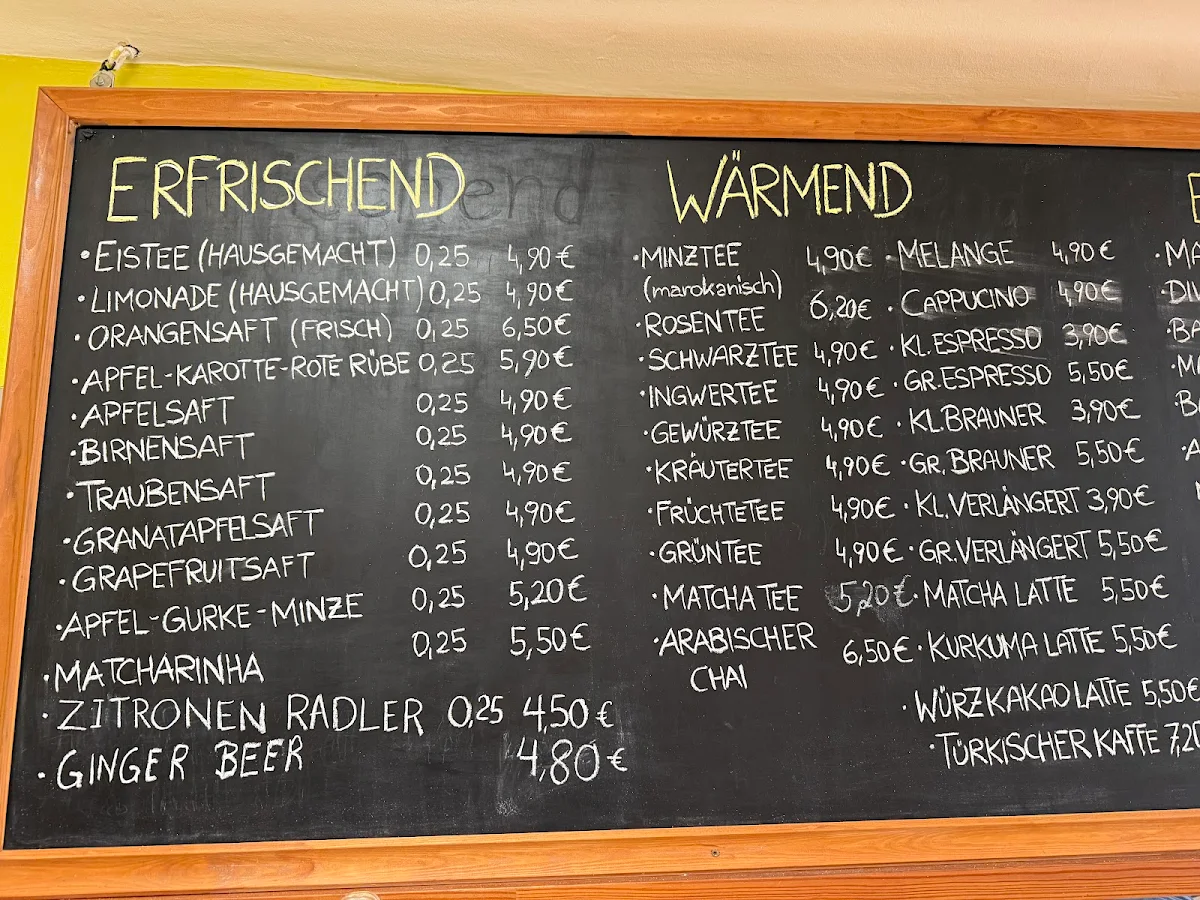 ERFRISCHEND
• EISTEE (HAUSGEMACHT) 0,25 4,90€
• LIMONADE (HAUSGEMACHT) 0,25 4,90€
• ORANGENSAFT (FRISCH) 0,25 6,50€
• APFEL-KAROTTE-ROTE RÜBE 0,25 5,90€
• APFELSAFT 0,25 4,90€
• BIRNENSAFT 0,25 4,90€
• TRAUBENSAFT 0,25 4,90€
• GRANATAPFELSAFT 0,25 4,90€
• GRAPEFRUITSAFT 0,25 4,90€
• APFEL-GURKE-MINZE 0,25 5,20€
• MATCHARINHA 0,25 5,50€
• ZITRONEN RADLER 0,25 4,50€
• GINGER BEER 4,80€
WÄRMEND
• MINZTEE 4,90€
(marokanisch)
• ROSENTEE 6,20€
• SCHWARZTEE 4,90€
• INGWERTEE 4,90€
• GEWÜRZTEE 4,90€
• KRÄUTERTEE 4,90€
• FRÜCHTETEE 4,90€
• GRÜNTEE 4,90€
• MATCHA TEE 5,20€
• ARABISCHER 6,50€
CHAI
• MELANGE 4,90€
• CAPPUCINO 4,90€
• KL. ESPRESSO 3,90€
• GR. ESPRESSO 5,50€
• KL. BRAUNER 3,90€
• GR. BRAUNER 5,50€
• KL. VERLÄNGERT 3,90€
• GR. VERLÄNGERT 5,50€
• MATCHA LATTE 5,50€
• KURKUMA LATTE 5,50€
• WÜRZKAKAO LATTE 5,50€
• TÜRKISCHER KAFFE 7,20